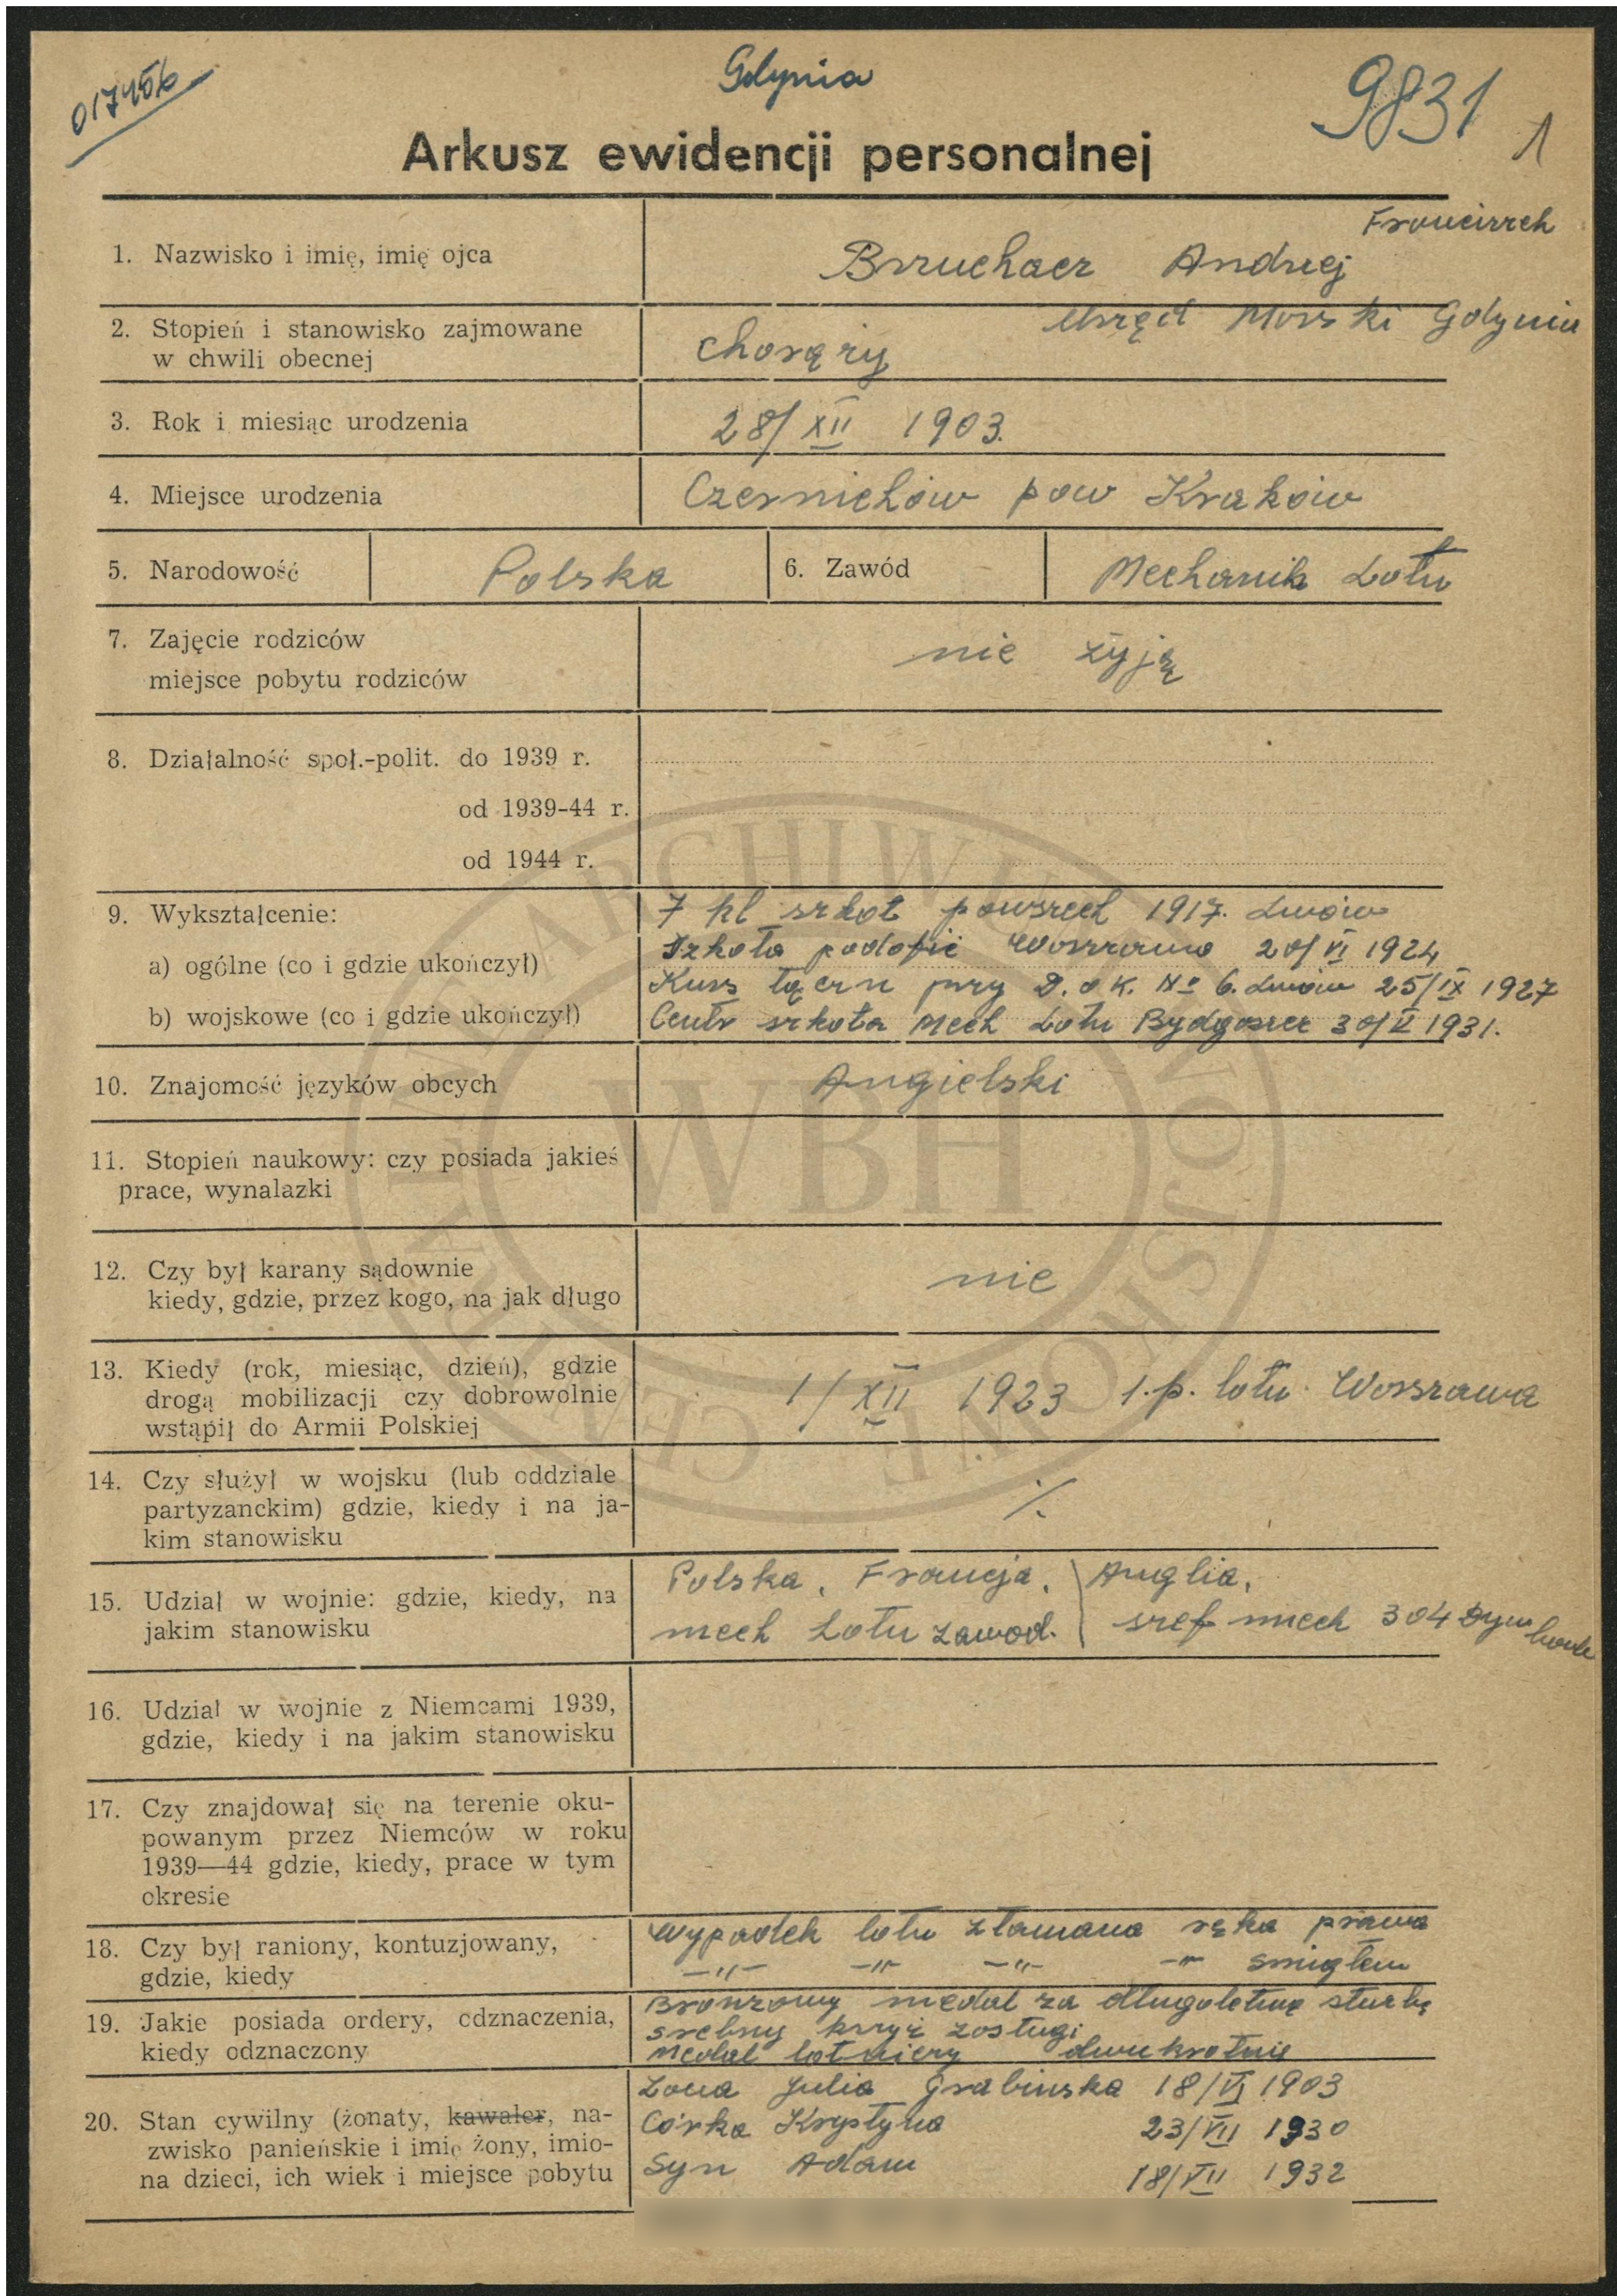 Gdynia
9831
1
Arkusz ewidencji personalnej
1. Nazwisko i imię, imię ojca
Franciszek
Brzuchacz Andrzej
2. Stopień i stanowisko zajmowane
w chwili obecnej
Urząd Morski Gdynia
chorąży
3. Rok i miesiąc urodzenia
28/XII 1903.
4. Miejsce urodzenia
Czernichów pow Kraków
5. Narodowość
Polska
6. Zawód
Mechanik Lotn
7. Zajęcie rodziców
miejsce pobytu rodziców
nie żyją
8. Działalność społ.-polit. do 1939 r.
od 1939-44 r.
od 1944 r.
9. Wykształcenie:
a) ogólne (co i gdzie ukończył)
b) wojskowe (co i gdzie ukończył)
7 kl szkoł powszech 1917. Lwów
Szkoła podofic Warszawa 20/VI 1924
Kurs łączn przy D.O.K. No 6. Lwów 25/IX 1927
Centr szkoła Mech Lotn Bydgoszcz 30/V 1931.
10. Znajomość języków obcych
Angielski
11. Stopień naukowy: czy posiada jakieś
prace, wynalazki
12. Czy był karany sądownie
kiedy, gdzie, przez kogo, na jak długo
nie
13. Kiedy (rok, miesiąc, dzień), gdzie
drogą mobilizacji czy dobrowolnie
wstąpił do Armii Polskiej
1/XII 1923 1.p. lotn. Warszawa
14. Czy służył w wojsku (lub oddziale
partyzanckim) gdzie, kiedy i na ja-
kim stanowisku
15. Udział w wojnie: gdzie, kiedy, na
jakim stanowisku
Polska, Francja, Anglia,
mech Lotn zawod. szef mech 304 Dyw bomb
16. Udział w wojnie z Niemcami 1939,
gdzie, kiedy i na jakim stanowisku
17. Czy znajdował się na terenie oku-
powanym przez Niemców w roku
1939—44 gdzie, kiedy, prace w tym
okresie
18. Czy był raniony, kontuzjowany,
gdzie, kiedy
Wypadek lotn złamana ręka prawa
—"— —"— —"— —"— śmigłem
19. Jakie posiada ordery, odznaczenia,
kiedy odznaczony
Bronzowy medal za długoletnią służbę
srebny krzyż zasługi
Medal lotniczy dwukrotnie
20. Stan cywilny (żonaty, kawaler, na-
zwisko panieńskie i imię żony, imio-
na dzieci, ich wiek i miejsce pobytu
Żona Julia Grabinska 18/VI 1903
Córka Krystyna 23/VII 1930
Syn Adam 18/VII 1932
WBH